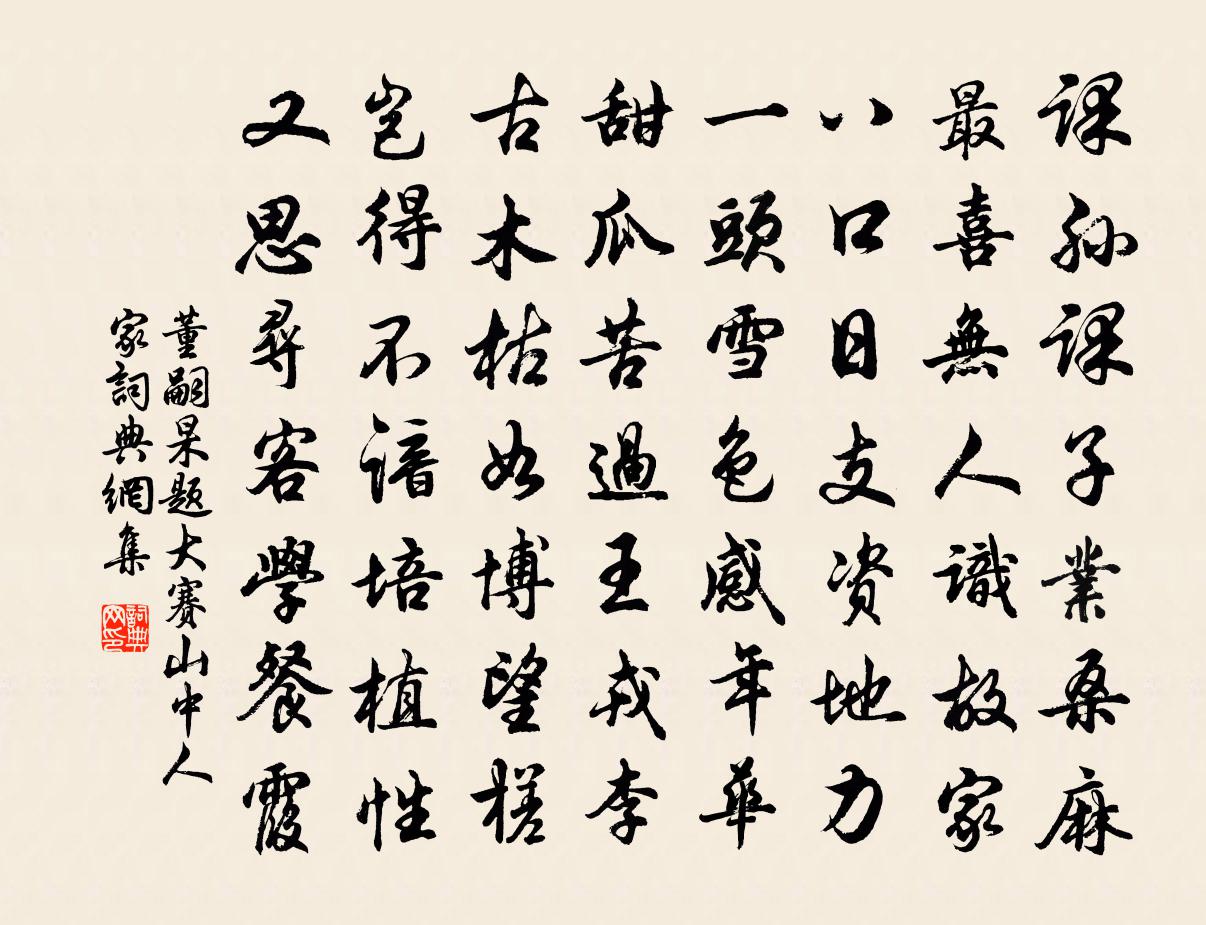 課孫課子業桑麻
最喜無人識故家
八口日支資地力
一頭雪色感年華
甜瓜苦過王戎李
古木枯如博望槎
豈得不諳培植性
又思尋客學餐霞
董嗣杲題大賽山中人
家詞典網集
詞典网印